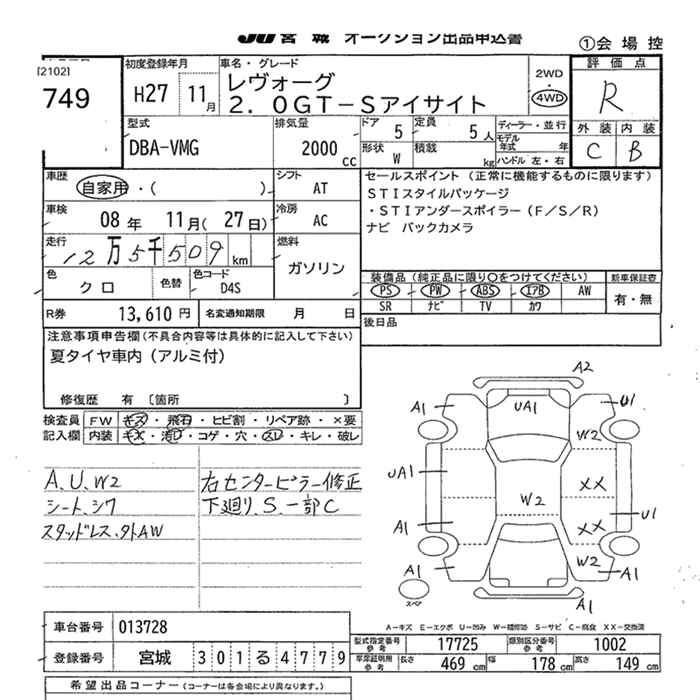 JU 宮城 オークション出品申込書
①会場控
[2102]
749
初度登録年月
H27 11月
車名・グレード
レヴォーグ
2.0GT-Sアイサイト
2WD
4WD
評価点
R
外装 内装
C B
型式
DBA-VMG
排気量
2000cc
ドア 5
定員 5人
形状 W
積載 kg
ディーラー・並行
モデル年式 年
ハンドル 左・右
車歴
自家用・( )
シフト
AT
車検
08年 11月(27日)
冷房
AC
走行
12万5千509km
燃料
ガソリン
色
クロ
色替
色コード
D4S
R券 13,610円
名変通知期限 月 日
セールスポイント(正常に機能するものに限ります)
STIスタイルパッケージ
・STIアンダースポイラー(F/S/R)
ナビ バックカメラ
装備品(純正品に限り○をつけてください)
PS PW ABS エアB AW
SR ナビ TV カワ
新車保証書
有・無
後日品
注意事項申告欄(不具合内容等は具体的に記入して下さい)
夏タイヤ車内(アルミ付)
修復歴 有 〔箇所 〕
検査員
記入欄
FW キズ・飛石・ヒビ割・リペア跡・×要
内装 キズ・汚レ・コゲ・穴・スレ・キレ・破レ
A、U、W2
シート、シワ
スタッドレス、外AW
右センターピラー修正
下廻り、S、一部C
A2
A1 UA1 U1
W2
UA1 XX
W2
A1 XX U1
W2
A1 A1
A1
スペア
A-キズ E-エクボ U-凹み W-補修跡 S-サビ C-腐食 XX-交換済
車台番号 013728
登録番号 宮城 301る4779
型式指定番号 参考 17725
類別区分番号 参考 1002
車庫証明用 参考 長さ 469cm 幅 178cm 高さ 149cm
希望出品コーナー(コーナーは各会場により異なります。)